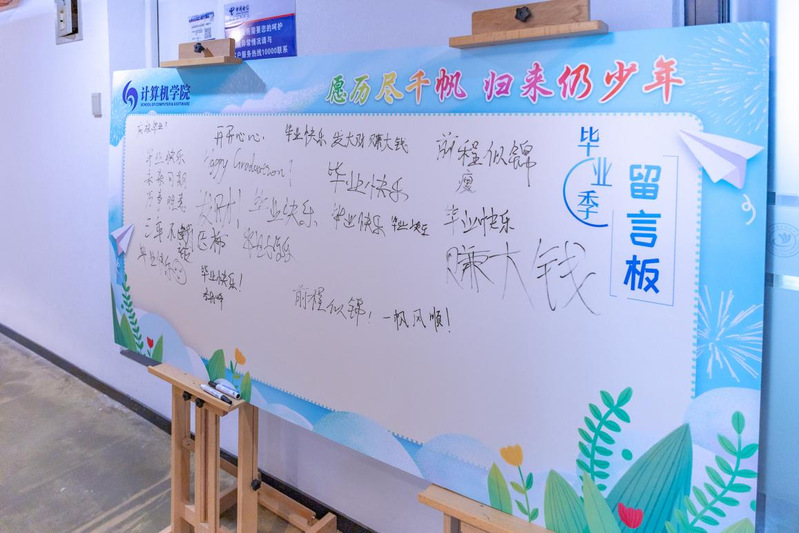 中国电信
服务热线10000联系
计算机学院
SCHOOL OF COMPUTER & SOFTWARE
愿历尽千帆 归来仍少年
毕业季
留言板
开开心心.
毕业快乐 发大财 赚大钱
前程似锦
毕业快乐
Happy Graduation!
毕业快乐
未来可期
万事胜意
发财!
毕业快乐
毕业快乐
毕业快乐
毕业快乐
赚大钱
毕业快乐
毕业快乐!
前程似锦,一帆风顺!